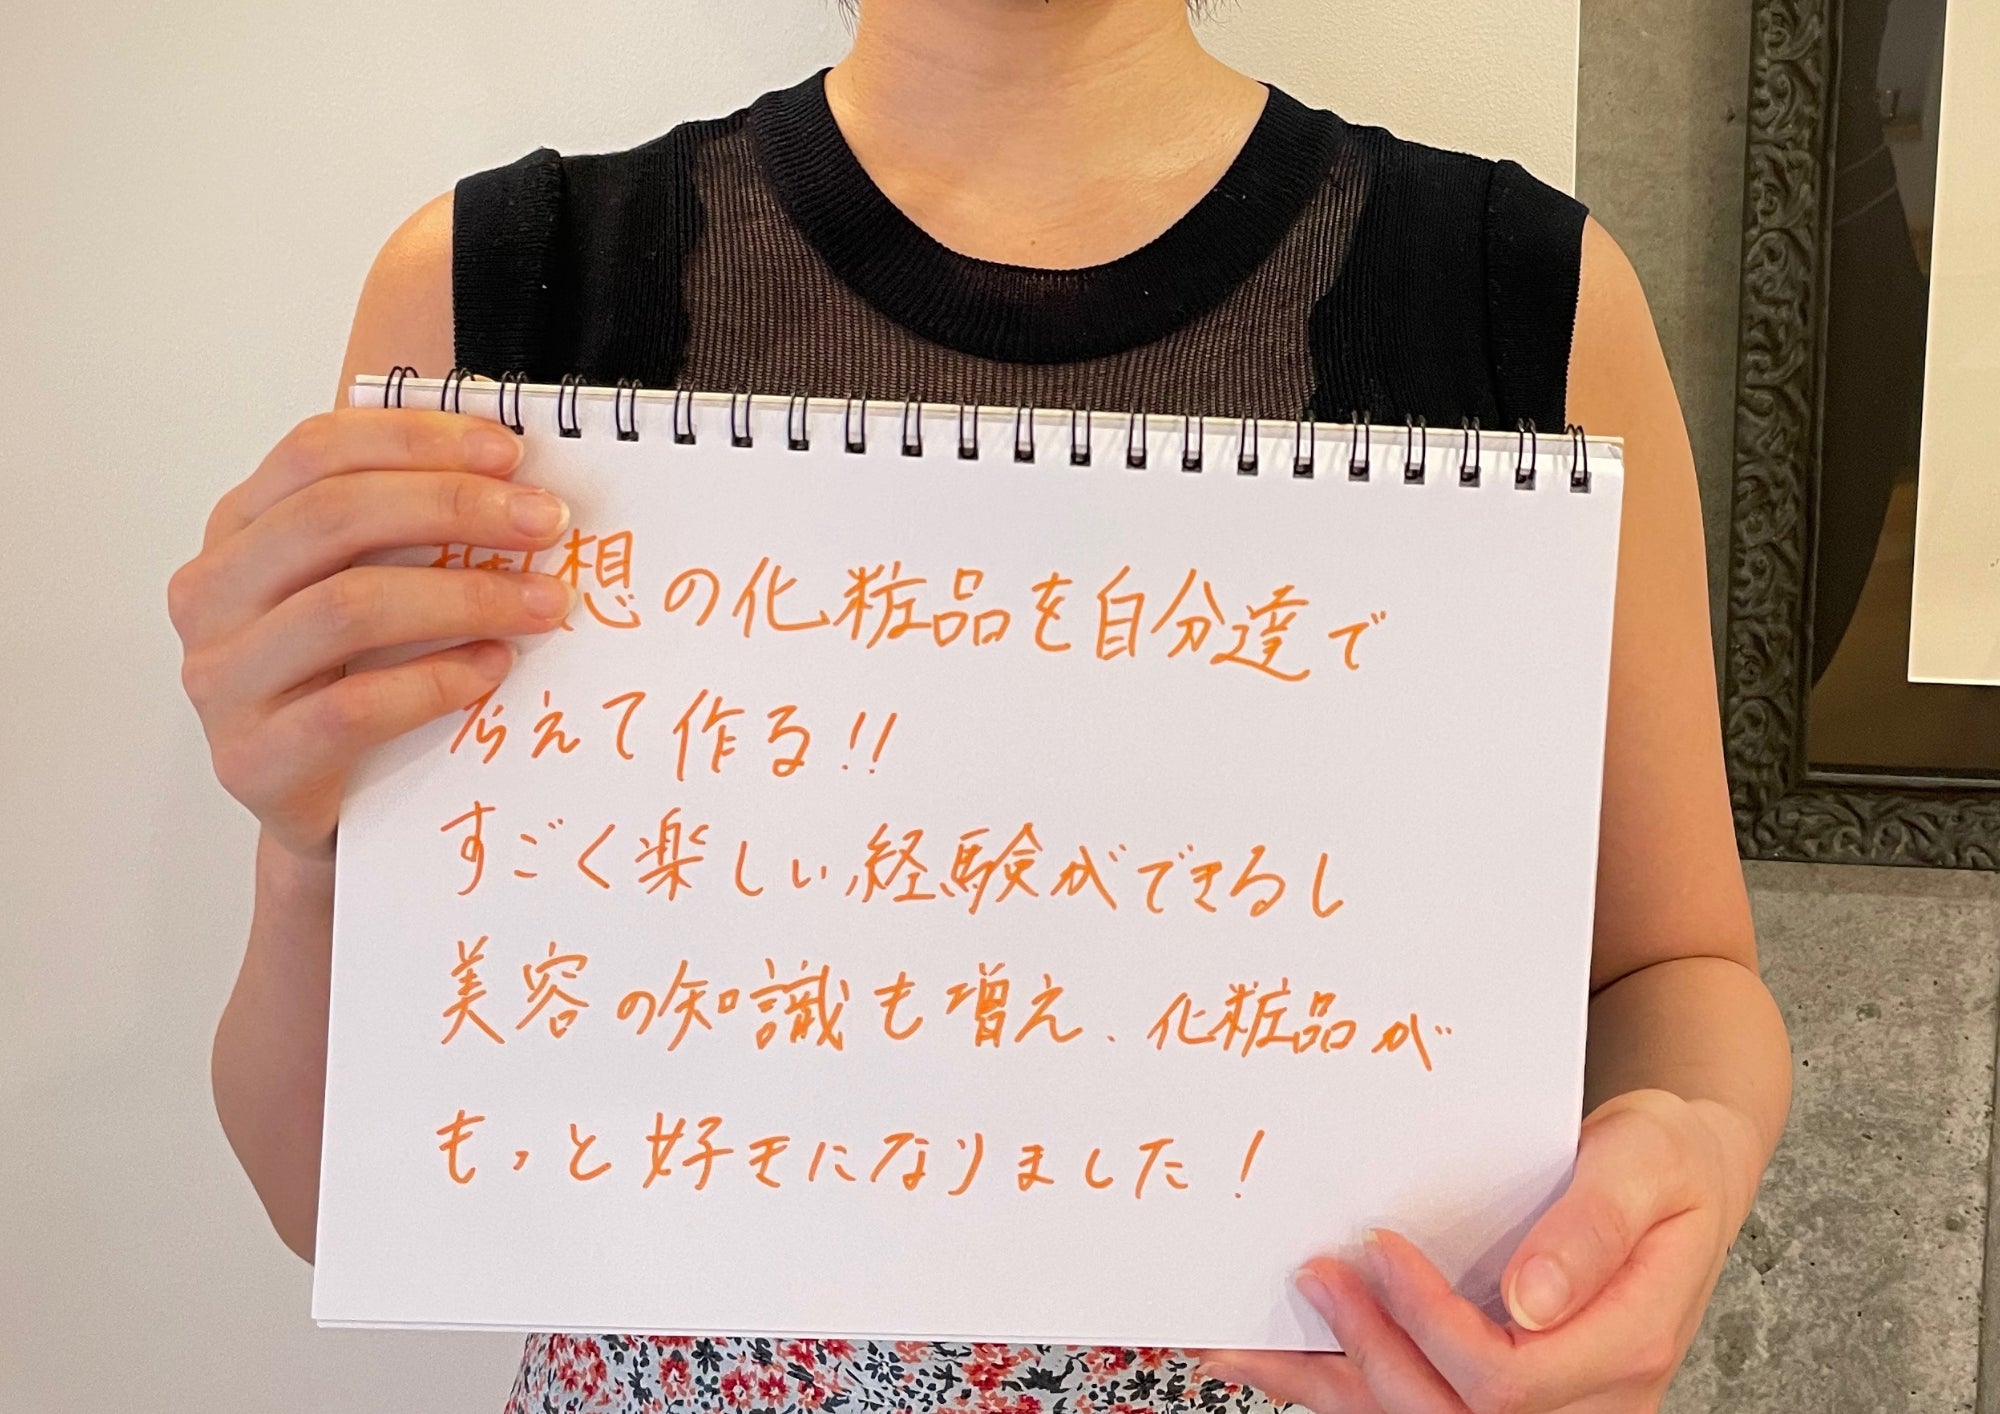 想の化粧品を自分達で
考えて作る!!
すごく楽しい経験ができるし
美容の知識も増え、化粧品が
もっと好きになりました！